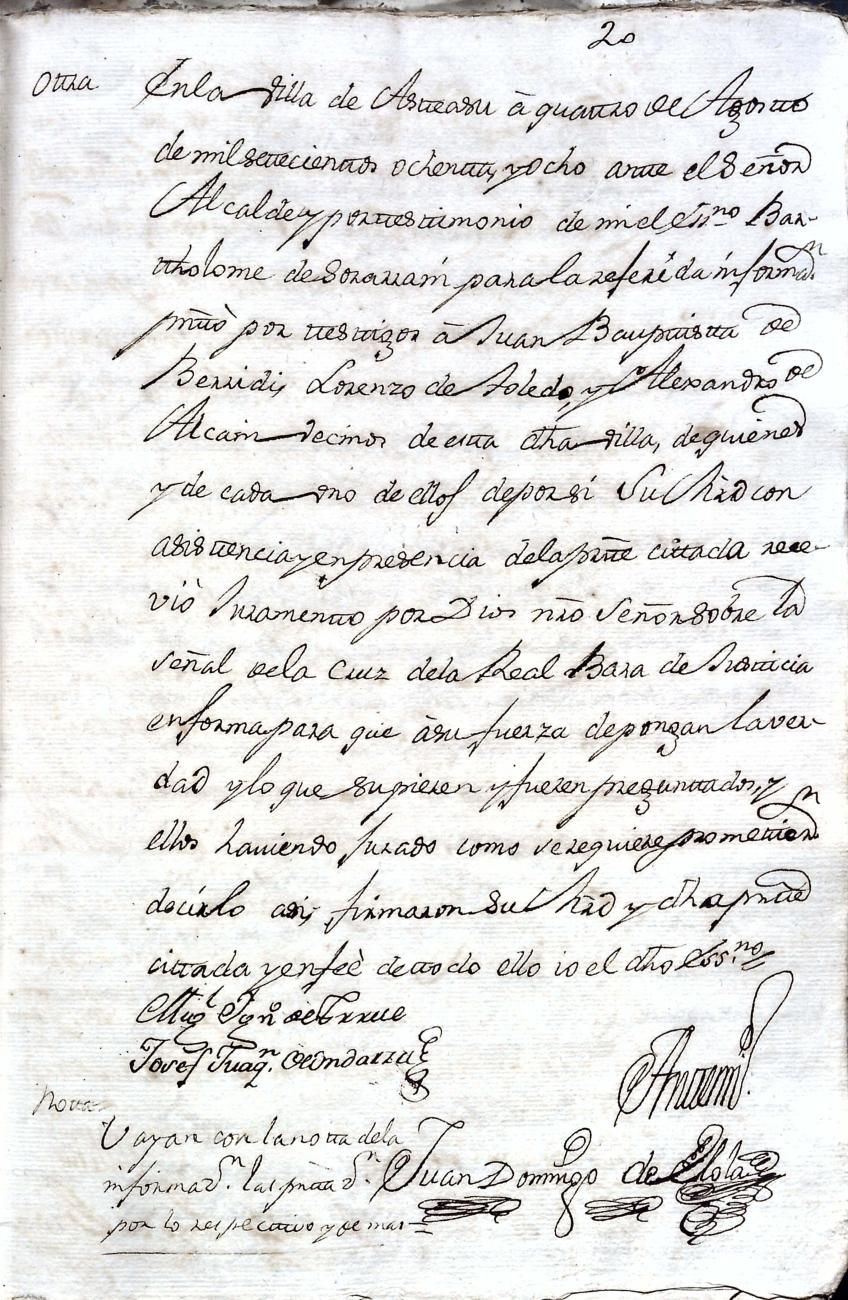 20
Ottra
En la villa de Asteasu à quattro de Agostto
de mil settecienttos ochentta, y ocho antte el Señor
Alcalde y por testimonio de mi el Ess.no Bar-
ttholome de Sorarrain para la referida informaz.n
prntò por ttesttigos à Juan Bauptistta de
Berridi, Lorenzo de Toledo, y Alexandro de
Alcain vecinos de esta dha villa, de quienes
y de cada vno de ellos de por si Su Mrd con
asisttencia y en presencia de la partte cittada rece-
viò Juramentto por Dios nro Señor sobre la
señal de la Cruz de la Real Bara de Justticia
en forma para que à su fuerza depongan la ver-
dad y lo que supieren y fueren preguntados, y
ellos haviendo Jurado como se requiere prometieron
decirlo asi, firmaron Su Mrd y dha partte
cittada y en feè de ttodo ello io el dho Ess.no
Mig.l Ign.o de Yrrue
Josef Juaq.n de Yndarra
Antemi.
Notta
Vayan con la notta de la
informaz.n las prnttaz.n
Juan Domingo de Elola
por lo respectivo y demas